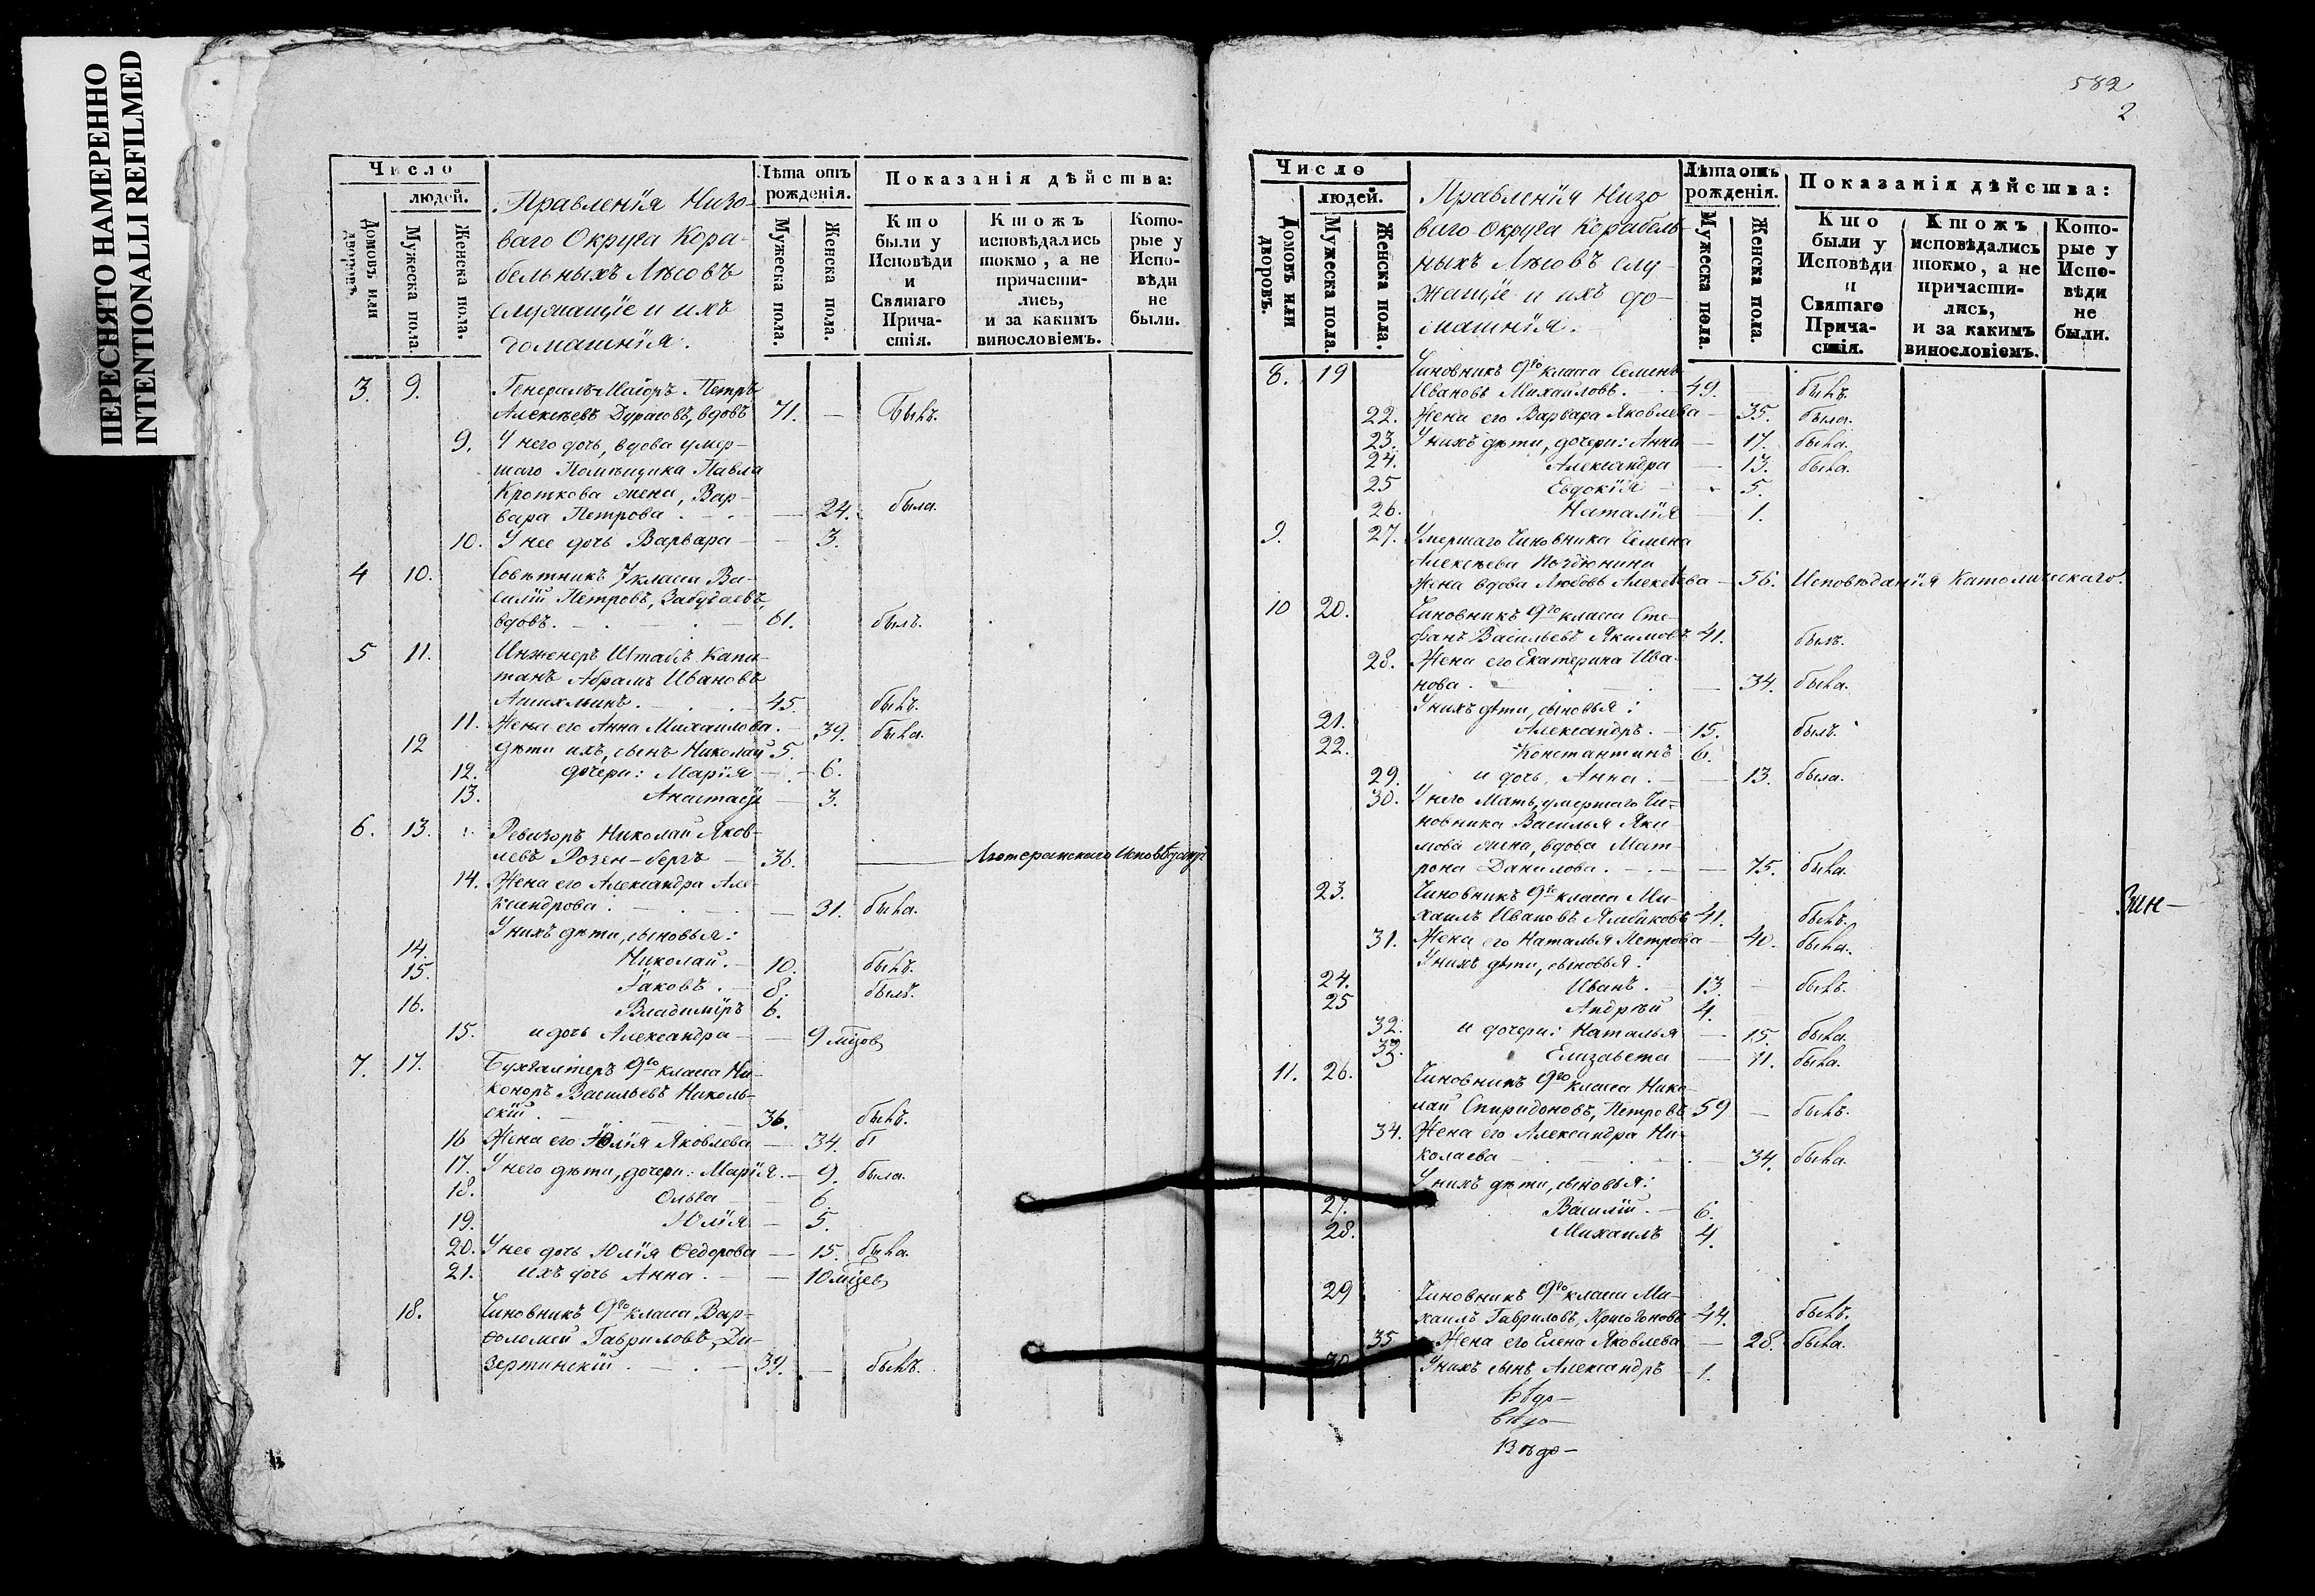 ПЕРЕСНЯТО НАМЕРЕННО
INTENTIONALLI REFILMED
Число
людей.
Домовъ или дворовъ.
Мужеска пола.
Женска пола.
Правленія Низо-
ваго Округа Кора-
бельныхъ Лѣсовъ
служащіе и ихъ
домашнія.
Лѣта отъ рожденія.
Мужеска пола.
Женска пола.
Показанія дѣйства:
Кто были у Исповѣди и Святаго Прича-стія.
Ктожъ исповѣдались токмо, а не причасти-лись, и за какимъ винословіемъ.
Кото-рые у Испо-вѣди не были.
3. 9. Генералъ-Маіоръ Петръ
Алексѣевъ Дурасовъ, вдовъ 71. — Былъ.
9. У него дочь, вдова умер-
шаго Помѣщика Павла
Кроткова жена, Вар-
вара Петрова . — 24. была.
10. У нее дочь Варвара — 3.
4 10. Совѣтникъ 7 класса Ва-
силій Петровъ,
вдовъ. 61. былъ.
5 11. Инженеръ Штабсъ Капи-
танъ Абрамъ Ивановъ
45. былъ.
11. Жена его Анна Михаилова. — 39. была.
12 Дѣти ихъ, сынъ Николай 5.
12. дочери: Марія — 6.
13. Анастасія — 3.
6. 13. Ревизоръ Николай Яков-
левъ Розен-бергъ — 36. — Лютеранскаго Исповѣданія
14. Жена его Александра Але-
ксандрова . — 31. была.
У нихъ дѣти, сыновья:
14. Николай. — 10. былъ.
15. Іаковъ. — 8. былъ.
16. Владиміръ 6.
15. и дочь Александра — 9 мѣсяцовъ
7. 17. Бухгалтеръ 9го класса Ни-
каноръ Васильевъ Николь-
скій . — 36. былъ.
16 Жена его Юлія Яковлева — 34. бы
17. У него дѣти, дочери: Марія. — 9. была.
18. Ольга — 6
19. Юлія — 5.
20. У нее дочь Юлія Федорова — 15. была.
21. ихъ дочь Анна. — 10 мѣсяцевъ
18. Чиновникъ 9го класса Вар-
фоломей Гавриловъ, Ди-
зертинскій . — 39. — былъ.
582
2
Число
людей.
Домовъ или дворовъ.
Мужеска пола.
Женска пола.
Правленія Низо
ваго Округа Корабель-
ныхъ Лѣсовъ слу-
жащіе и ихъ до-
машнія.
Лѣта отъ рожденія.
Мужеска пола.
Женска пола.
Показанія дѣйства:
Кто были у Исповѣди и Святаго Прича-стія.
Ктожъ исповѣдались токмо, а не причасти-лись, и за какимъ винословіемъ.
Кото-рые у Испо-вѣди не были.
8. 19 Чиновникъ 9го класса Семенъ
Ивановъ Михаиловъ. — 49. — былъ.
22. Жена его Варвара Яковлева — 35. была.
23. У нихъ дѣти, дочери: Анна — 17. была.
24. Александра — 13. была.
25 Евдокія — 5.
26. Наталія — 1.
9. 27. Умершаго Чиновника Семена
Алексѣева Поздюнина
жена вдова Любовь Алексѣева — 56. Исповѣданія Католическаго.
10 20. Чиновникъ 9го класса Сте-
фанъ Васильевъ Якимовъ 41. былъ.
28. Жена его Екатерина Ива-
нова. — 34. была.
У нихъ дѣти, сыновья:
21. Александръ. — 15. былъ.
22. Константинъ 6.
29. и дочь, Анна. — 13. была.
30. У него Мать, умершаго Чи-
новника Василья Яки-
мова жена, вдова Мат-
рона Данилова. — 75. была.
23. Чиновникъ 9го класса Ми-
хаилъ Ивановъ 41. былъ.
31. Жена его Наталья Петрова — 40. была.
У нихъ дѣти, сыновья:
24. Иванъ. — 13. — былъ.
25 Андрѣй 4.
32. и дочери: Наталья — 15. была.
33. Елизавета — 11. была.
Зин—
11. 26. Чиновникъ 9го класса Нико-
лай Спиридоновъ, Петровъ 59 — былъ.
34. Жена его Александра Ни-
колаева — 34. была.
У нихъ дѣти, сыновья:
27. Василій. — 6.
28. Михаилъ 4.
29 Чиновникъ 9го класса Ми-
хаилъ Гавриловъ, 44. былъ.
35 Жена его Елена Яковлева — 28. была.
30. У нихъ сынъ Александръ 1.
Вѣдо—
вѣдо—
Вѣдо—